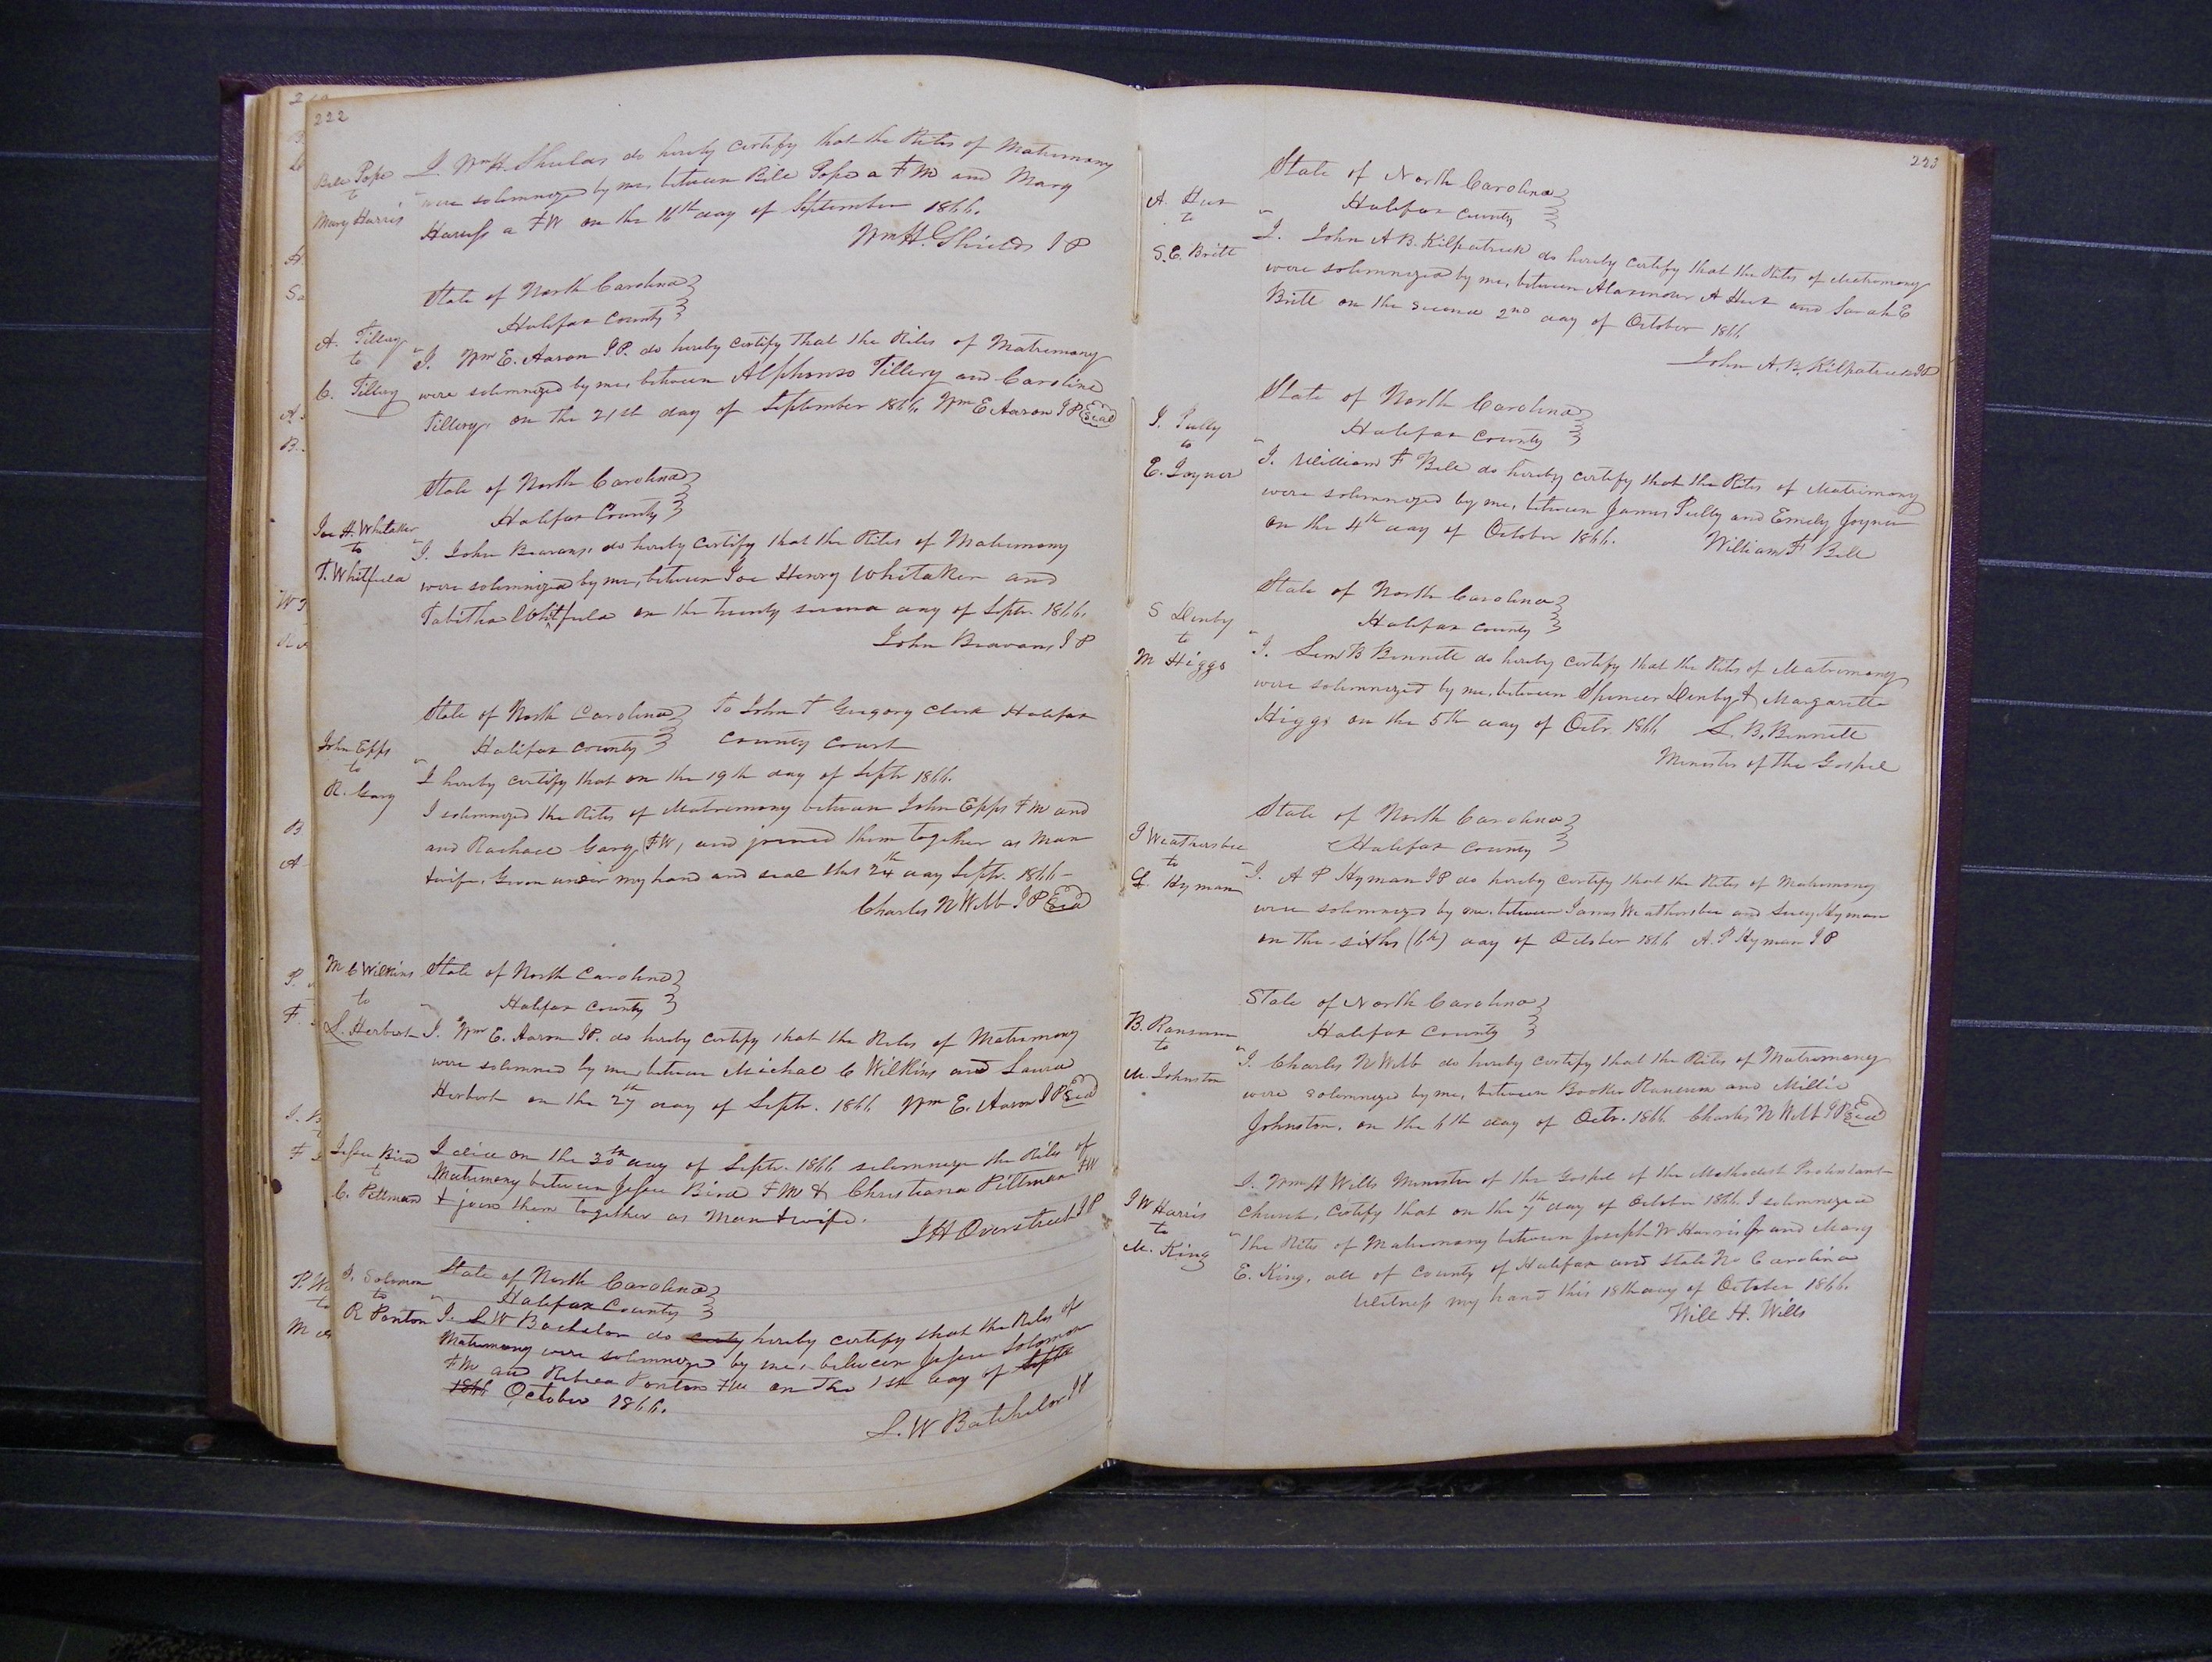 222
Bill Pope
to
Mary Harris
I WmH. Shields do hereby certify that the Rites of Matrimony
were solemnized by me, between Bill Pope a F M and Mary
Harriss a F W on the 16th day of September 1866.
Wm H. Shields J P
State of North Carolina
Halifax County
A. Tillery
to
C. Tillery
I. Wm E. Aaron J.P. do hereby certify that the Rites of Matrimony
were solemnized by me, between Alphonso Tillery and Caroline
Tillery, on the 21st day of September 1866. Wm E Aaron J P Seal
State of North Carolina
Halifax County
Joe H. Whitaker
to
T. Whitfield
I. John Beavans, do hereby certify that the Rites of Matrimony
were solemnized by me, between Joe Henry Whitaker and
Tabitha Whitfield on the twenty second day of Septr. 1866.
John Beavans J P
State of North Carolina
Halifax County
To John T Gregory Clerk Halifax
County Court
John Epps
to
R. Gary
I hereby certify that on the 19th day of Septr 1866.
I solemnized the Rites of Matrimony between John Epps F M and
and Rachael Gary, F W, and joined them together as Man
& wife. Given under my hand and seal this 24th day Septr. 1866 -
Charles N Webb J P Seal
M C Wilkins
to
L. Herbert
State of North Carolina
Halifax County
I. Wm E. Aaron J P. do hereby certify that the Rites of Matrimony
were solemned by me, between Michael C Wilkins and Laura
Herbert on the 27th day of Septr. 1866 Wm E. Aaron J P Seal
Jesse Bird
to
C. Pittman
I did on the 30th day of Septr. 1866 solemnize the Rites of
Matrimony between Jesse Bird F M & Christiana Pittman F W
& join them together as Man & wife.
J H Overstreet J P
J. Solomon
to
R Ponton
State of North Carolina
Halifax County
I. S. W Bachelor do hereby certify that the Rites of
Matrimony were solemnized by me, between Jesse Solomon
F M and Rebeca Ponton F W on the 1st day of Septr
1866 October 1866.
S. W Batchelor J P
223
State of North Carolina
Halifax County
A.
to
S. E. Britt
I. John A B. Kilpatrick do hereby certify that the Rites of Matrimony
were solemnized by me, between Alaxander A and Sarah E
Britt on the second 2nd day of October 1866
John A. B. Kilpatrick J P
State of North Carolina
Halifax County
J. Pully
to
E. Joyner
I. William F Bell do hereby certify that the Rites of Matrimony
were solemnized by me, between James Pully and Emely Joyner
on the 4th day of October 1866.
William F Bell
State of North Carolina
Halifax County
S Denby
to
M Higgs
I. Lem B Bennett do hereby certify that the Rites of Matrimony
were solemnized by me, between Spencer Denby & Margarett
Higgs on the 5th day of Octr. 1866 L. B. Bennett
Minister of the Gospel
State of North Carolina
Halifax County
J Weathersbee
to
L. Hyman
I. A P Hyman J P do hereby certify that the Rites of Matrimony
were solemnized by me, between James Weathersbee and Lucy Hyman
on the sixths (6th) day of October 1866 A. P Hyman J P
State of North Carolina
Halifax County
B. Ransum
to
M. Johnston
I. Charles N Webb do hereby certify that the Rites of Matrimony
were solemnized by me, between Booker Ransum and Millie
Johnston. on the 6th day of Octr. 1866. Charles N Webb J P Seal
J W Harris
to
M. King
I. Wm H Wills Minister of the Gospel of the Methodist Protestant
Church, Certify that on the 7th day of October 1866. I solemnized
the Rites of Matrimony between Joseph W Harris Jr and Mary
E. King, all of County of Halifax and State No Carolina
Witness my hand this 18th day of October 1866.
Will H. Wills